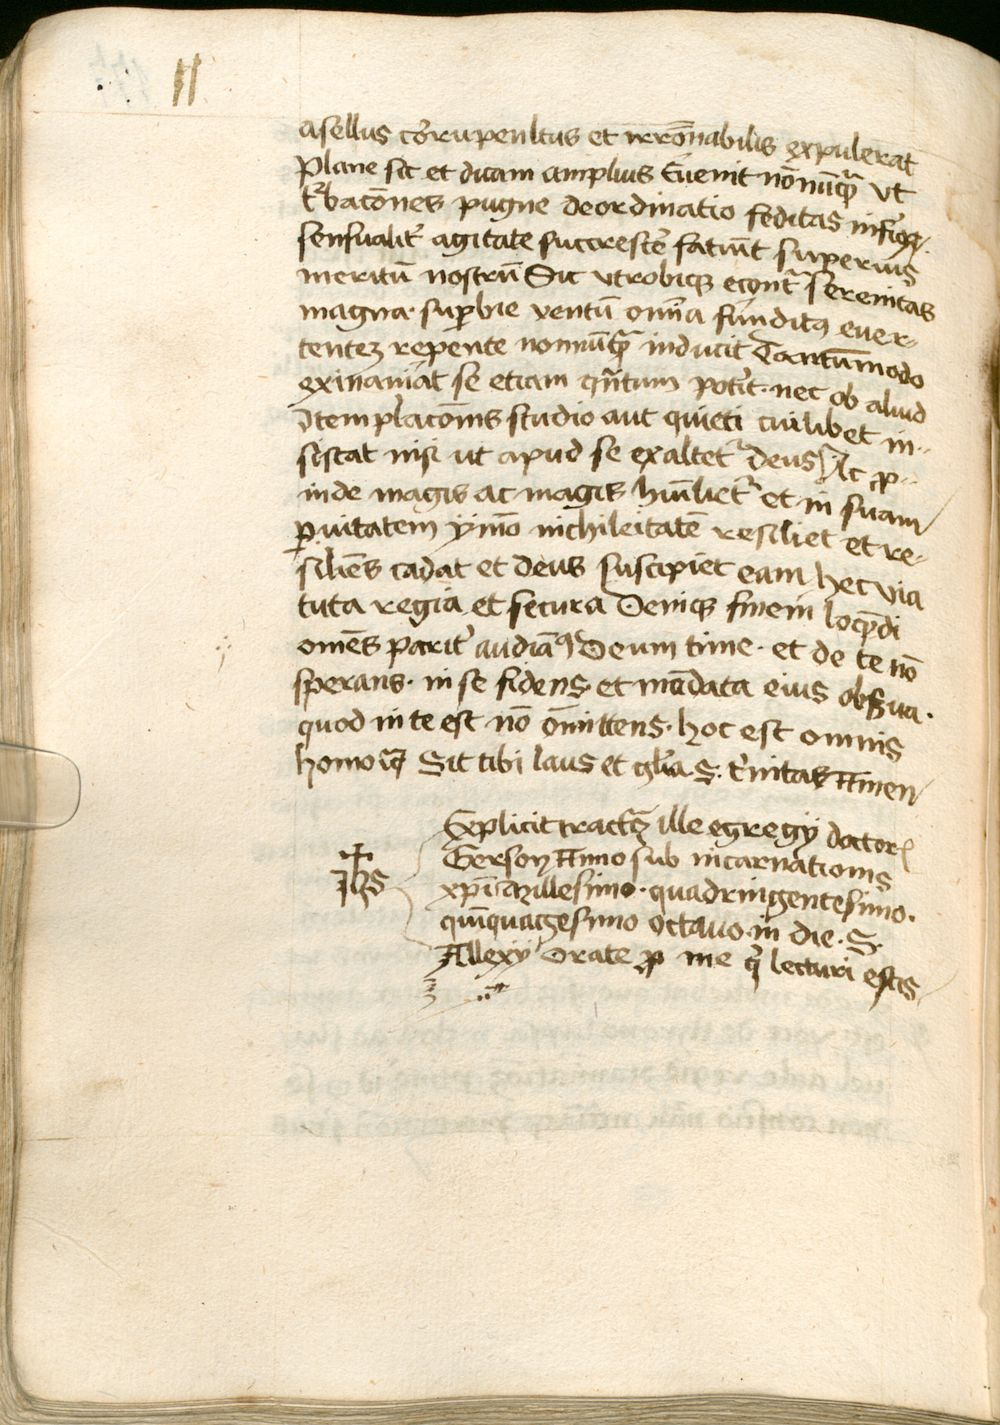 asellus cōrupenltus et irrōnabilis expulerat
Plane sic et dicam amplius Euenit nōnūqꝫ ut
t'bacōnes pugne deordinatio feditas inferioꝝ
sensualit' agitate succrescē faciūt superius
meritū nostrū Sic utrobiqꝫ econtᵃ serenitas
magna superbie ventū omīa funditꝰ euer-
tenteꝫ repente nonnūqᵃ inducit Tantūmodo
exinaniat se etiam qᵃntum poterit nec ob aliud
ꝯtemplacōnis studio aut quieti cuilibet in-
sistat nisi ut apud se exaltet' deus Ac ꝓ-
inde magis ac magis hūiliet' et in suam
ꝑuitatem ymō nichileitatē resiliet et re-
siliēs cadat et deus suscipiet eam hec via
tuta regia et secura Deniqꝫ finem loqᵉndi
omēs parit' audiāꝰ Deum time et de te nō
sperans in se fidens et mādata eius obẜua
quod in te est nō ōmittens hoc est omnis
homo Sit tibi laus et glīa S. T'initas Amen
Explicit tractꝫ ille egregij doctorꝭ
Gerson Anno sub incarnationis
xpī Millesimo quadringentesimo
quīquagesimo octauo in die S.
Allexij Orate ꝓ me qⁱ lecturi estis
Jhs